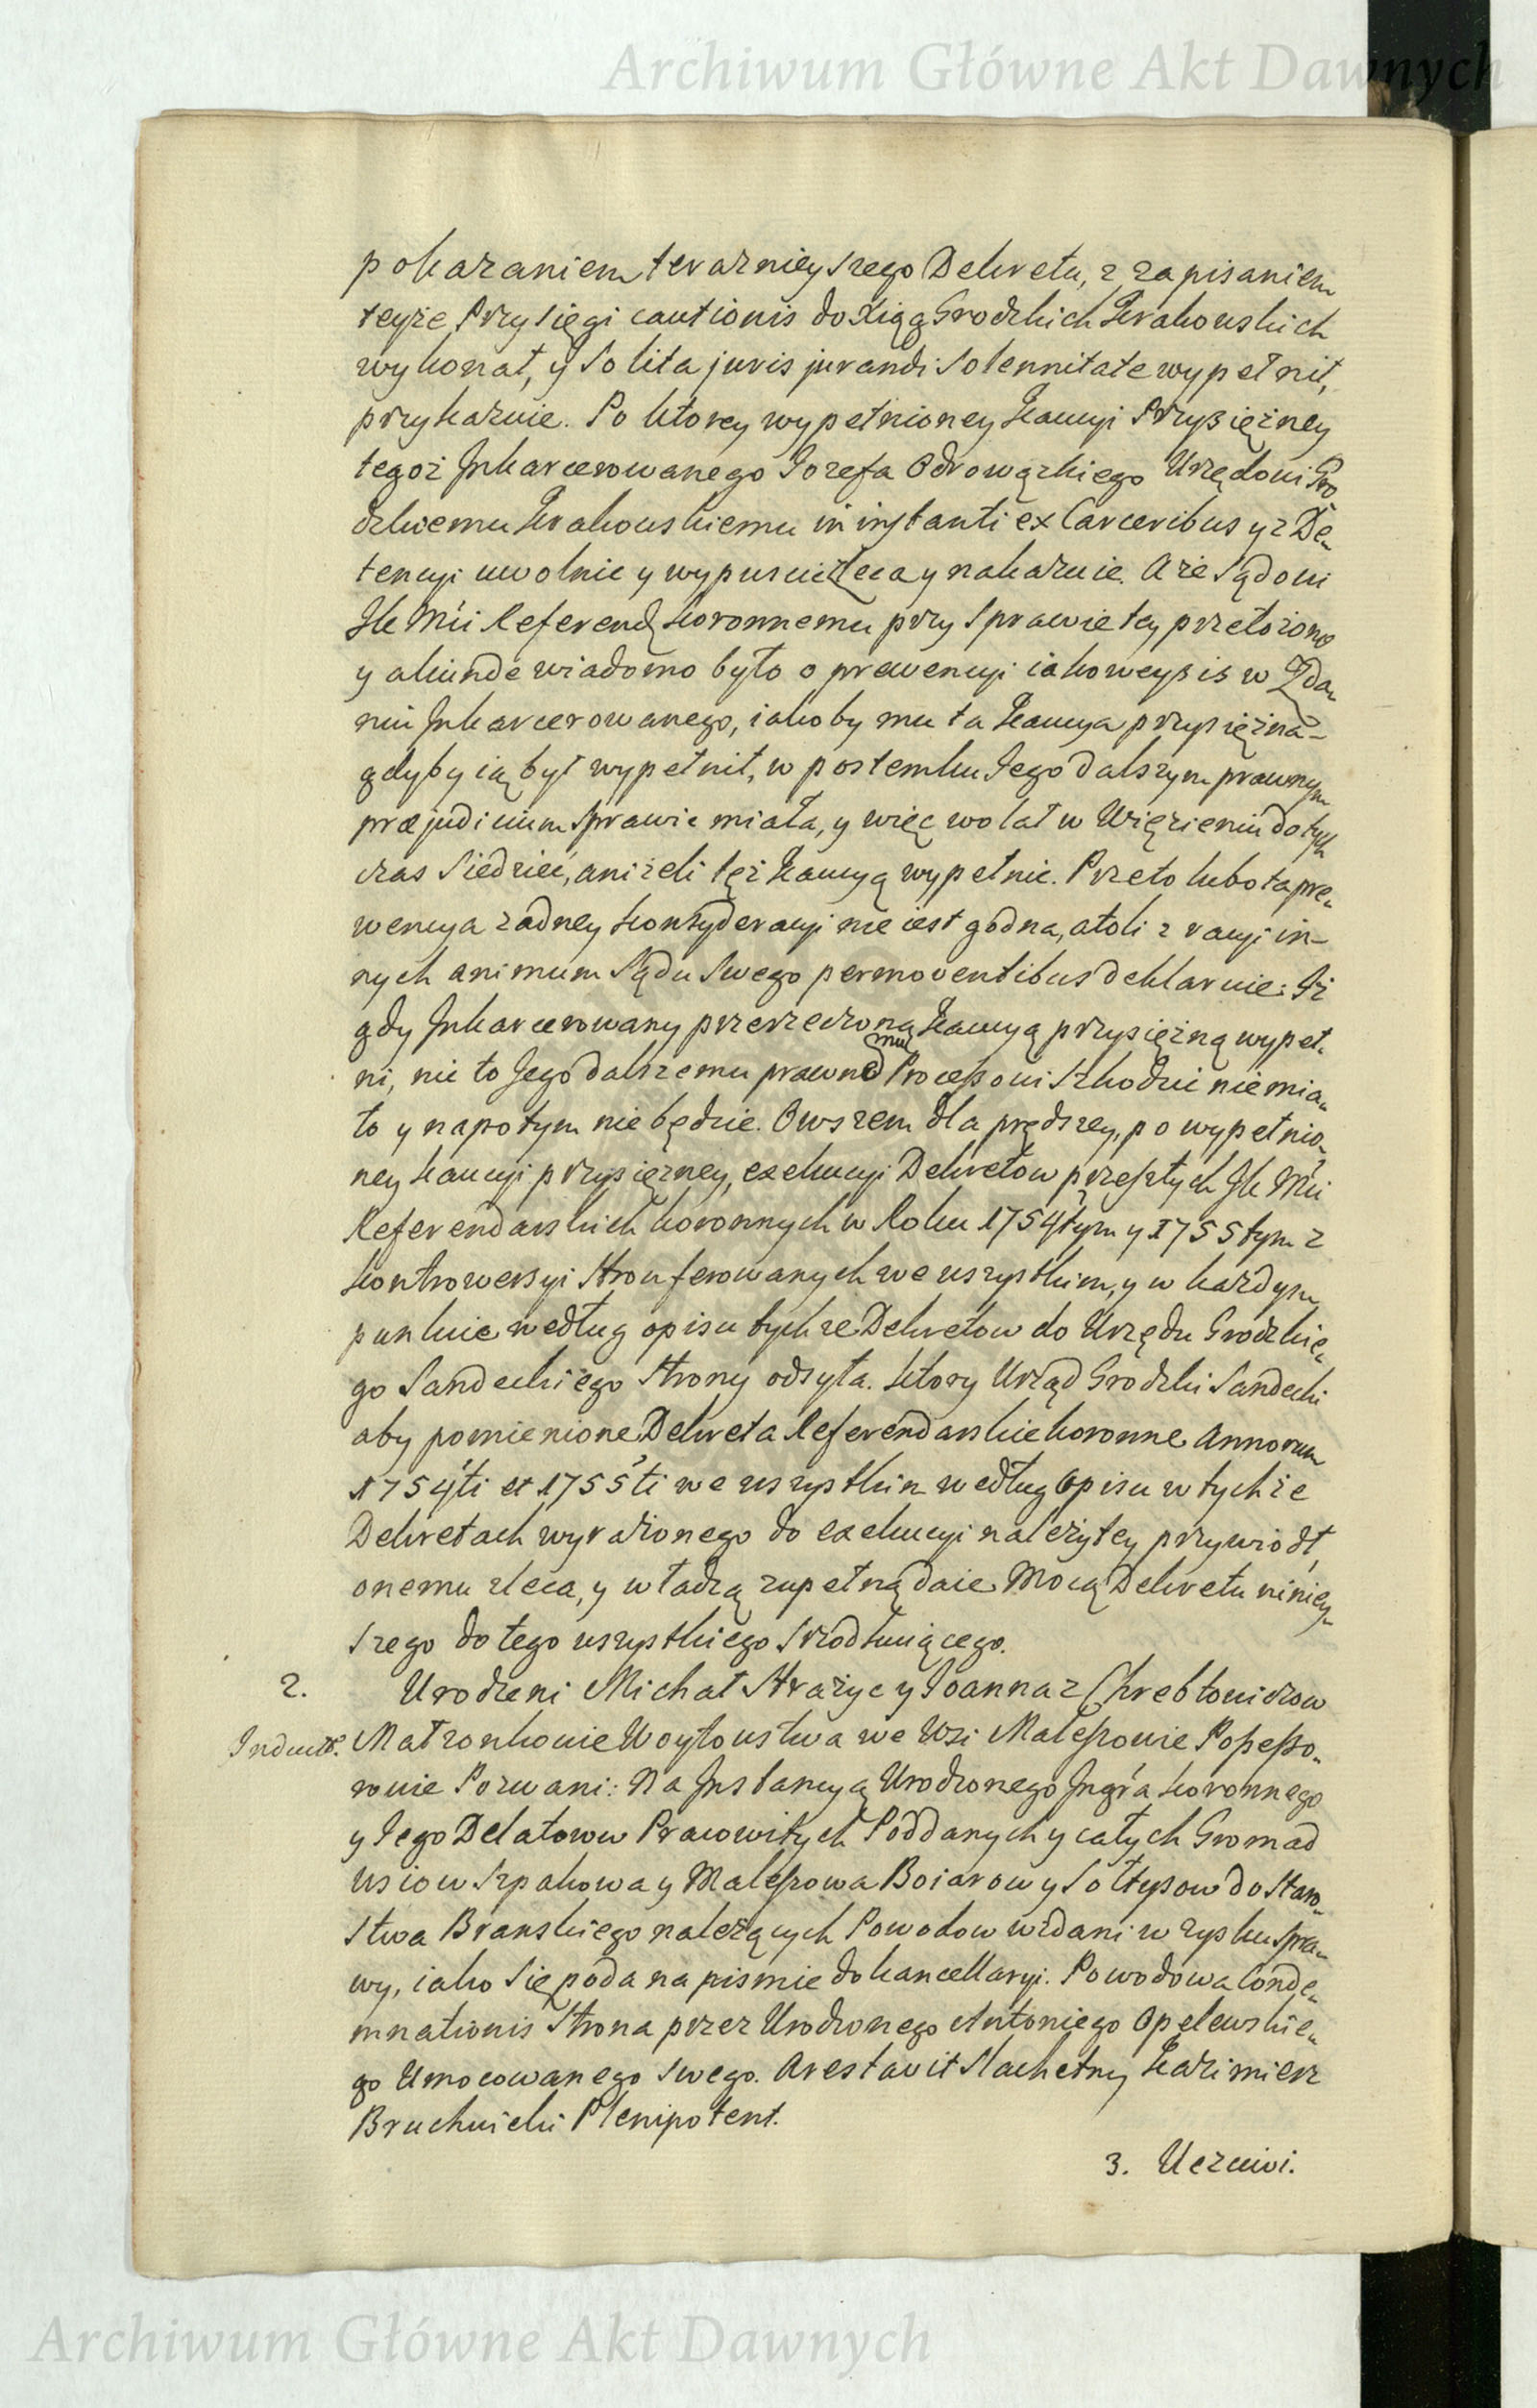 Archiwum Główne Akt Dawnych
pokazaniem terazniejszego Dekretu, z zapisaniem
teyże Przysięgi cautionis do Xiąg Grodzkich Krakowskich
wykonał, y solita juris jurandi solennitate wypełnił,
przykazuie. Po ktorey wypełnioney Kaucyi Przysiężney
tegoż Inkarcerowanego Jozefa Odrowązkiego Urzędowi Gro
dzkiemu Krakowskiemu in instanti ex Carceribus y z De„
tencyi uwolnic y wypuscic zleca y nakazuie. A że Sądowi
JK Mci Referend. Koronnemu przy Sprawie tey przełożono
y aliunde wiadomo było o prewencyi iakoweysis w Zda„
niu Inkarcerowanego, iakoby mu ta Kaucya przysiężna–
gdyby ią był wypełnił, w postemku Jego dalszym prawnym
præjudicium Sprawie miała, y więc wolał w Więzieniu dotych
czas Siedzieć, aniżeli też Kaucyą wypełnic. Przeto lubo ta pre„
wencya zadney Konsyderacyi nie iest godna, atoli z racyi in–
nych animum Sądu Swego permoventibus deklaruie: Iż
gdy Inkarcerowany przerzeczoną Kaucyą przysiężną wypeł„
ni, nic to Jego dalszemu prawnemu Processowi Szkodzic nie mia„
ło y napotym nie będzie. Owszem dla prędszey, po wypełnio„
ney kaucyi przysiężney, exekucyi Dekretow przeszłych JK Mci
Referendarskich koronnych w Roku 1754tym y 1755tym z
Kontrowersyi Stron ferowanych we wszystkim, y w każdym
punkcie według opisu tychże Dekretow do Urzędu Grodzkie„
go Sandeckiego Strony odsyła. Ktory Urząd Grodzki Sandecki
aby pomienione Dekreta Referendarskie koronne Annorum
1754ti et 1755ti we wszystkim według Opisu w tychże
Dekretach wyrażonego do exekucyi należytey przywiodł,
onemu zleca, y władzą zupełną daie Mocą Dekretu niniey„
szego do tego wszystkiego Srzodkuiącego.
2. Urodzeni Michał Strażyc y Joanna z Chrebtowiczow
Inducta. Małżonkowie Woytowstwa we Wsi Maleszowie Possesso„
rowie Pozwani: Na Instancyą Urodzonego Ingra Koronnego
y Jego Delatorow Pracowitych Poddanych y całych Gromad
Wsiow Szpakowa y Maleszowa Boiarow y Sołtysow do Staro„
stwa Branskiego należących Powodow wzdani w zysku Spra„
wy, iako się poda na pismie do kancellaryi. Powodowa Conde„
mnationis Strona przez Urodzonego Antoniego Opelewskie„
go Umocowanego Swego. Arestavit Slachetny Kazimierz
Bruchnicki Plenipotent.
3. Uczciwi.
Archiwum Główne Akt Dawnych